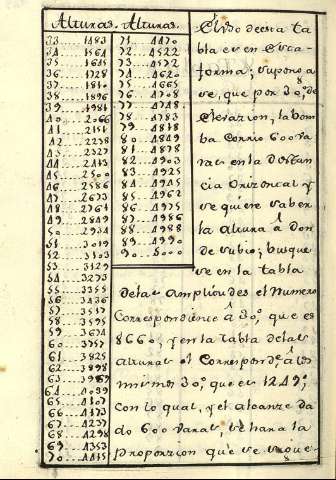 Alturas. Alturas.
33....1483
34....1564
35....1645
36....1728
37....1810
38....1896
39....1981
40....2066
41....2151
42....2238
43....2327
44....2413
45....2500
46....2586
47....2673
48....2761
49....2849
50....2934
51....3019
52....3103
53....3129
54....3273
55....3355
56....3436
57....3517
58....3595
59....3674
60....3757
61....3825
62....3898
63....3969
64....4039
65....4107
66....4173
67....4237
68....4298
69....4353
70....4415
71....4470
72....4522
73....4572
74....4620
75....4665
76....4708
77....4748
78....4783
79....4818
80....4849
81....4878
82....4903
83....4925
84....4945
85....4962
86....4975
87....4986
88....4988
89....4990
90....5000
El uso de esta ta
bla es en esta
forma; supongo
se, que por 30,,° de
Elevazion, la bom
ba Corrio 600 va
ras en la distan
cia Orizontal y
se quiere saber
la altura â don
de subio; busque
se en la tabla
de las amplitudes el Numero
Correspondiente â 30,,° que es
8660; y en la tabla de las
alturas el Correspond.te â los
mismos 30,,° que es 1249;
con lo qual, y el alcanze da
do 600 varas, se hara la
proporzion que se sigue-